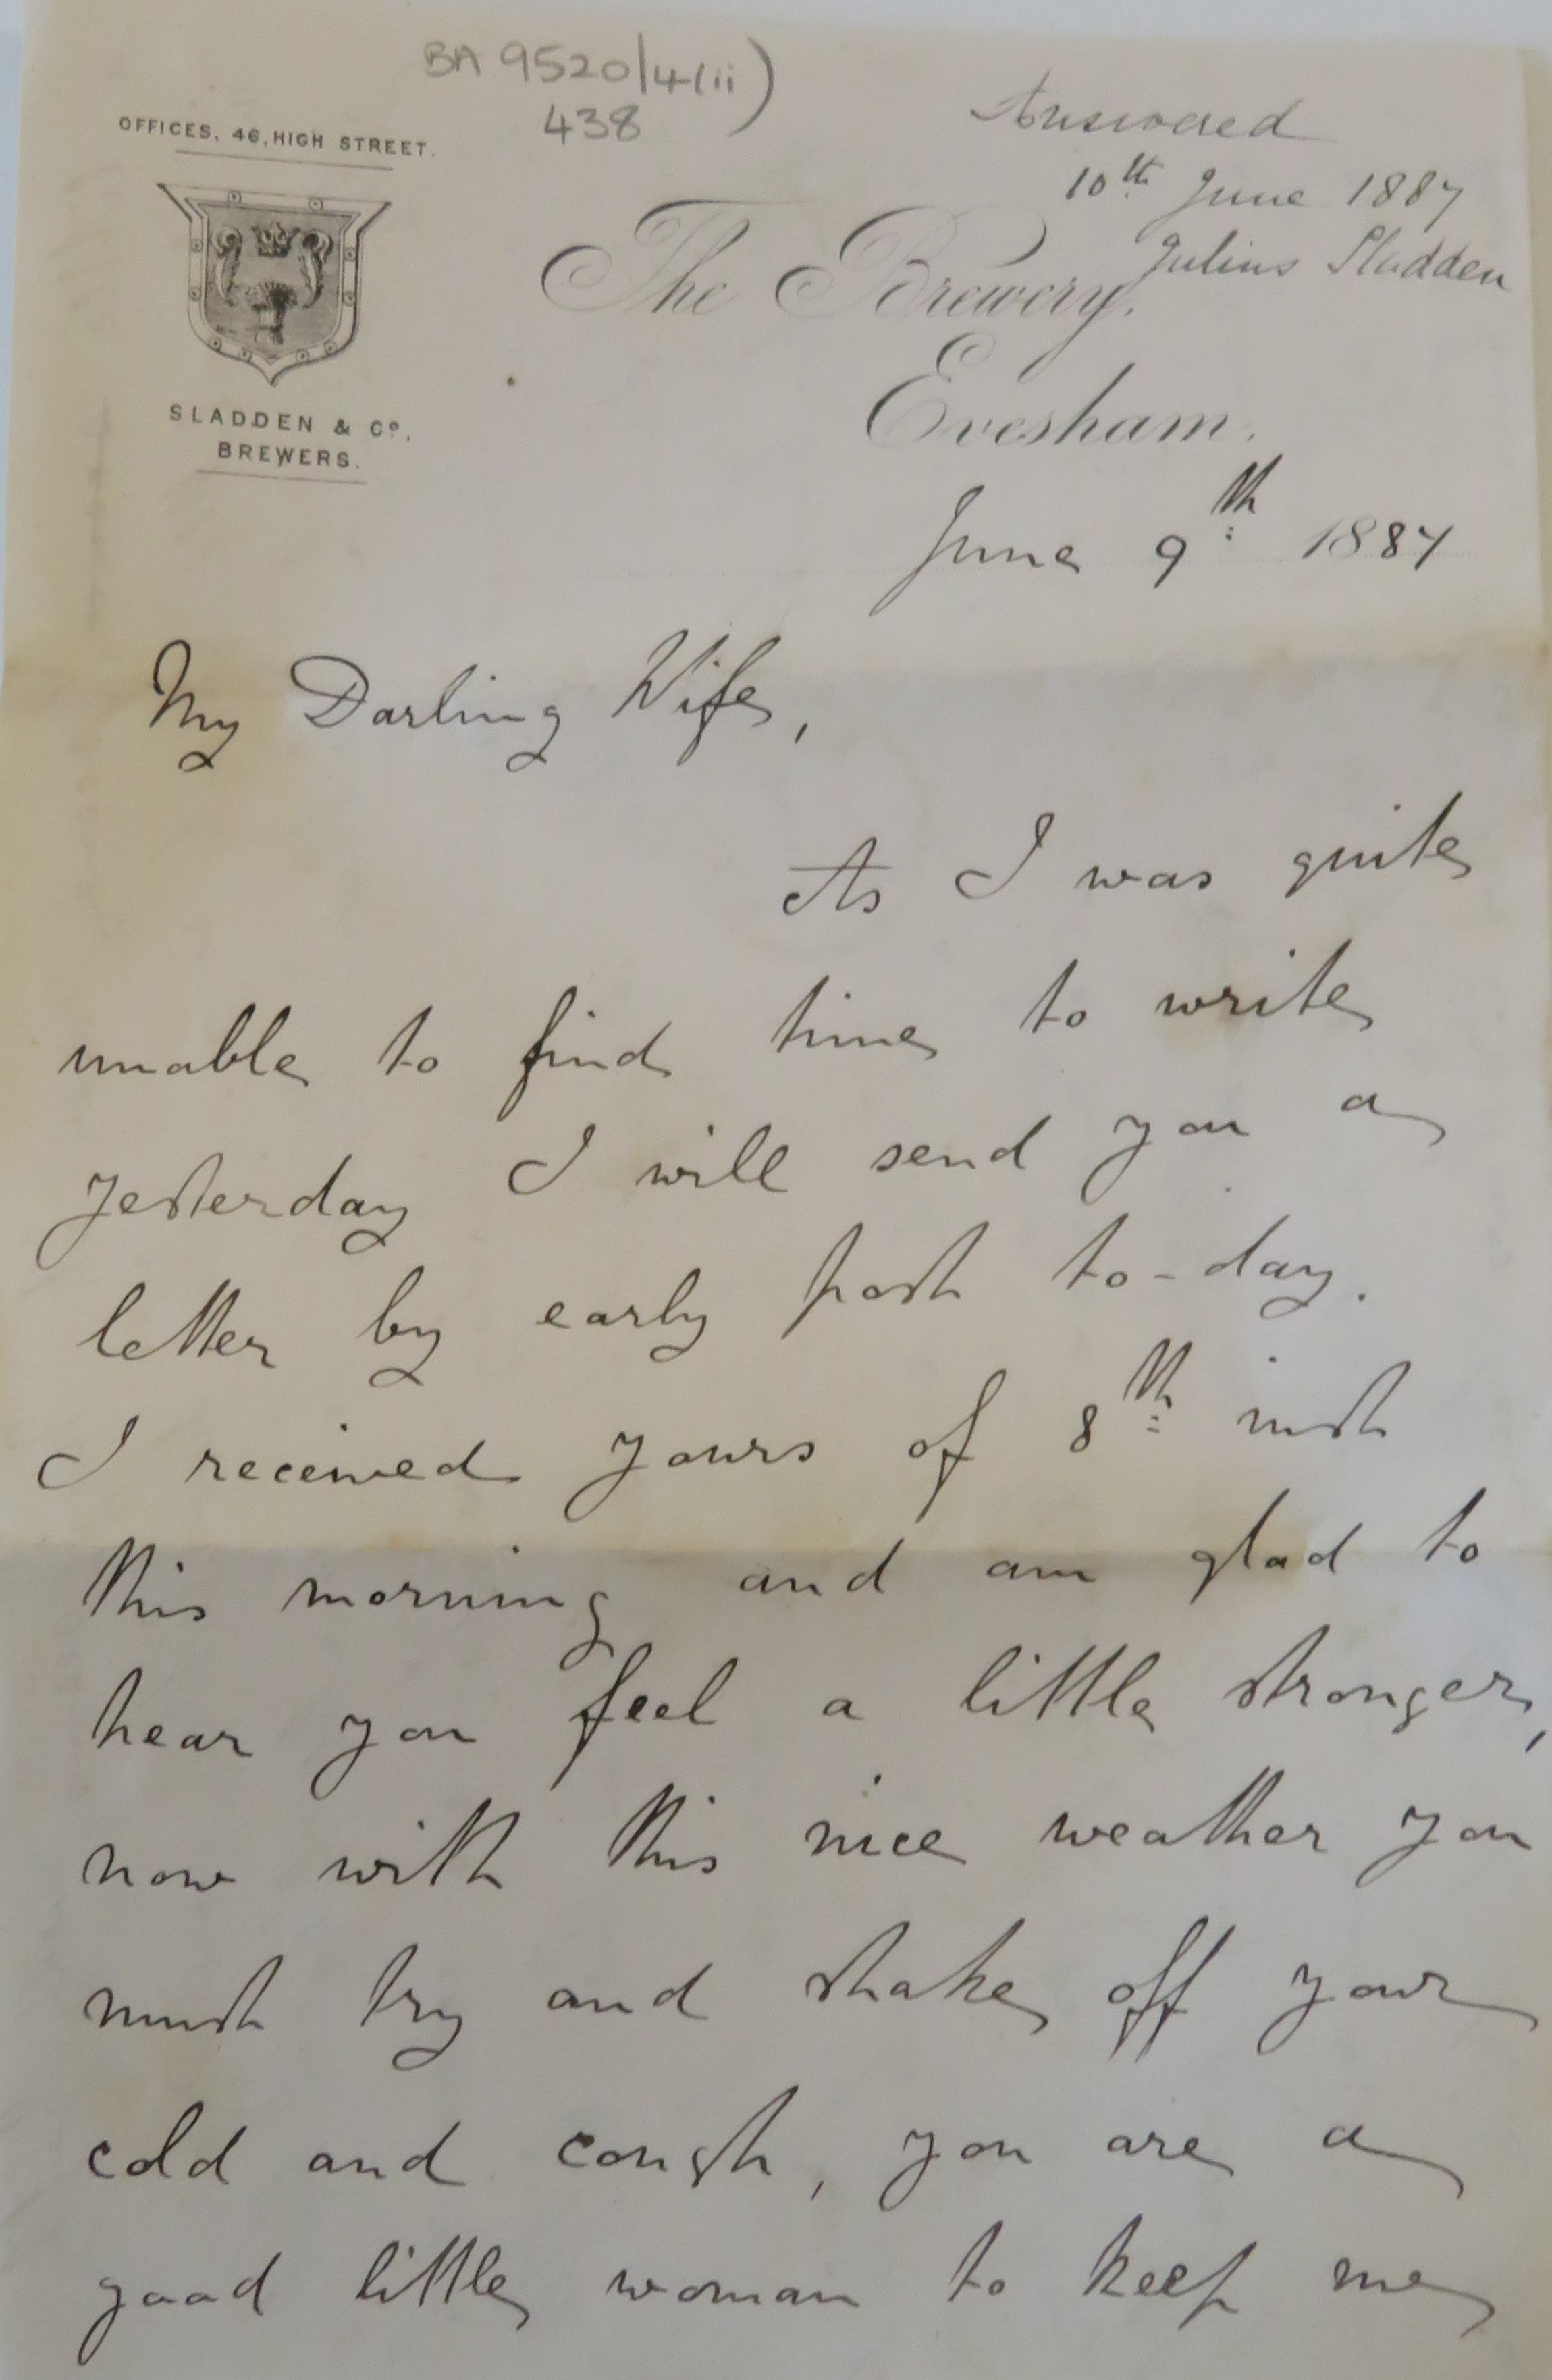 BA 9520/4(ii)
438
Answered
10th June 1887
Julius Sladden
OFFICES, 46, HIGH STREET.
SLADDEN & Co.
BREWERS.
The Brewery,
Evesham.
June 9th 1887
My Darling Wife,
As I was quite
unable to find time to write
yesterday I will send you a
letter by early post to-day.
I received yours of 8th inst
this morning and am glad to
hear you feel a little stronger,
now with this nice weather you
must try and shake off your
cold and cough, you are a
good little woman to keep me